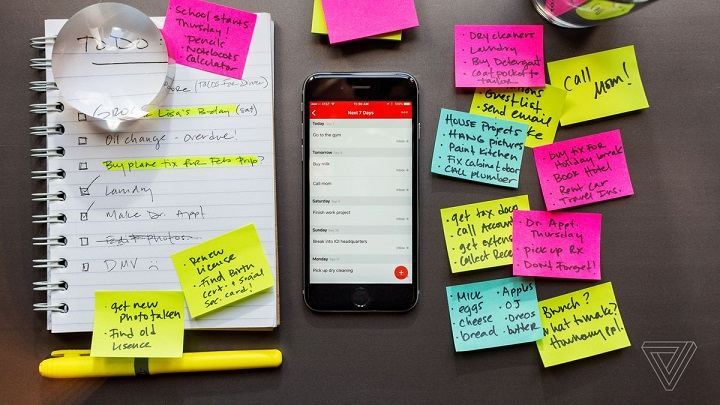 TO DO:
School starts
Thursday!
• Pencils
• Notebooks
• Calculator
GROC
Lisa's B-day (sat)
Oil change - overdue!
Buy plane tix for Feb trip?
Laundry
Make Dr. Appt
Edit photos
DMV
• Renew
License
• Find Birth
cert. + social
sec. card!
• get new
Photo taken
• Find old
lisence
AT&T
11:30 AM
Next 7 Days
Today
Go to the gym
Inbox
Tomorrow
Buy milk
Inbox
Call mom
Inbox
Saturday
Finish work project
Inbox
Sunday
Break into IOI headquarters
Inbox
Monday
Pick up dry cleaning
• Dry cleaners
• Laundry
• Buy Detergent
• Coat pocket to
tailor
Guest list
- send email
ke
Call
Mom!
HOUSE Projects
• HANG pictures
• Paint kitchen
• Fix cabinet door
• CALL plumber
• Buy tix for
Holiday break
• Book Hotel
• Rent Car
• Travel Ins.
• get tax docs
• Call Account
• get extens
• Collect Rece
• Dr. Appt.
Thursday
• pick up Rx
• Don't Forget!
• MILK
• eggs
• cheese
• bread
• Apples
• OJ
• Oreos
• butter
Brunch?
what to make?
Harmony epl.